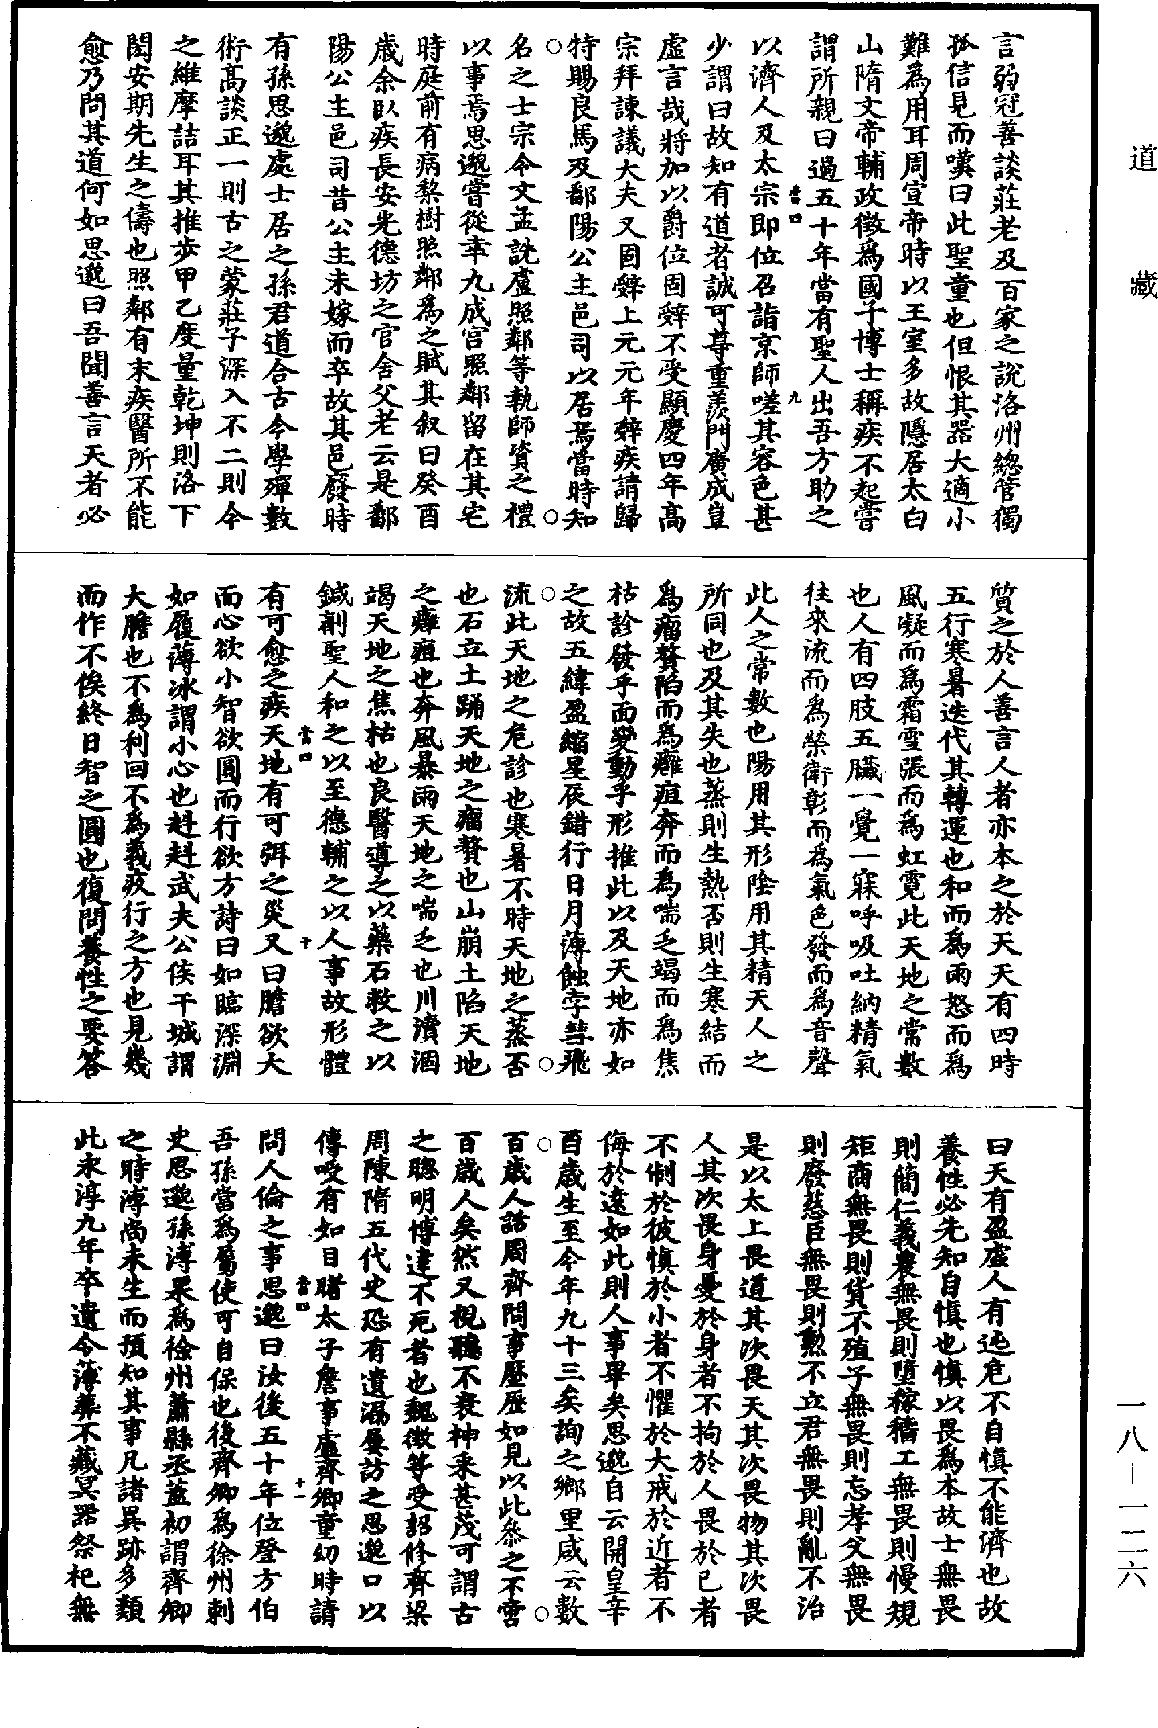 道藏
言弱冠善談莊老及百家之說洛州總管獨
孤信見而嘆曰此聖童也但恨其器大適小
難為用耳周宣帝時以王室多故隱居太白
山隋文帝輔政徵為國子博士稱疾不起嘗
謂所親曰過五十年當有聖人出吾方助之
以濟人及太宗即位召詣京師嗟其容色甚
少謂曰故知有道者誠可尊重羨門廣成豈
虛言哉將加以爵位固辭不受顯慶四年高
宗拜諫議大夫又固辭上元元年辭疾請歸
特賜良馬及鄱陽公主邑司以居焉當時知
名之士宗令文孟詵盧照鄰等執師資之禮
以事焉思邈嘗從幸九成宮照鄰留在其宅
時庭前有病黎樹照鄰為之賦其叙曰癸酉
歲余臥疾長安光德坊之官舍父老云是鄱
陽公主邑司昔公主未嫁而卒故其邑廢時
有孫思邈處士居之孫君道合古今學殫數
術高談正一則古之蒙莊子深入不二則今
之維摩詰耳其推步甲乙度量乾坤則洛下
閎安期先生之儔也照鄰有末疾醫所不能
愈乃問其道何如思邈曰吾聞善言天者必
質之於人善言人者亦本之於天天有四時
五行寒暑迭代其轉運也和而為雨怒而為
風凝而為霜雪張而為虹霓此天地之常數
也人有四肢五臟一覺一寐呼吸吐納精氣
往來流而為榮衛彰而為氣色發而為音聲
此人之常數也陽用其形陰用其精天人之
所同也及其失也蒸則生熱否則生寒結而
為瘤贅陷而為癰疽奔而為喘乏竭而為焦
枯診發乎面變動乎形推此以及天地亦如
之故五緯盈縮星辰錯行日月薄蝕孛彗飛
流此天地之危診也寒暑不時天地之蒸否
也石立土踊天地之瘤贅也山崩土陷天地
之癰疽也奔風暴雨天地之喘乏也川瀆涸
竭天地之焦枯也良醫導之以藥石救之以
鍼劑聖人和之以至德輔之以人事故形體
有可愈之疾天地有可弭之災又曰膽欲大
而心欲小智欲圓而行欲方詩曰如臨深淵
如履薄冰謂小心也赳赳武夫公侯干城謂
大膽也不為利回不為義疚行之方也見幾
而作不俟終日智之圓也復問養性之要答
曰天有盈虛人有迍危不自慎不能濟也故
養性必先知自慎也慎以畏為本故士無畏
則簡仁義農無畏則墮稼穡工無畏則慢規
矩商無畏則貨不殖子無畏則忘孝父無畏
則廢慈臣無畏則勲不立君無畏則亂不治
是以太上畏道其次畏天其次畏物其次畏
人其次畏身憂於身者不拘於人畏於已者
不制於彼慎於小者不懼於大戒於近者不
侮於遠如此則人事畢矣思邈自云開皇辛
酉歲生至今年九十三矣詢之鄉里咸云數
百歲人話周齊間事歷歷如見以此參之不啻
百歲人矣然又視聽不衰神采甚茂可謂古
之聰明博達不死者也魏徵等受詔修齊梁
周陳隋五代史恐有遺漏屢訪之思邈口以
傳授有如目睹太子詹事盧齊卿童幼時請
問人倫之事思邈曰汝後五十年位登方伯
吾孫當為屬吏可自保也後齊卿為徐州刺
史思邈孫溥果為徐州蕭縣丞蓋初謂齊卿
之時溥尚未生而預知其事凡諸異跡多類
此永淳九年卒遺令薄葬不藏冥器祭祀無
一八—一二六